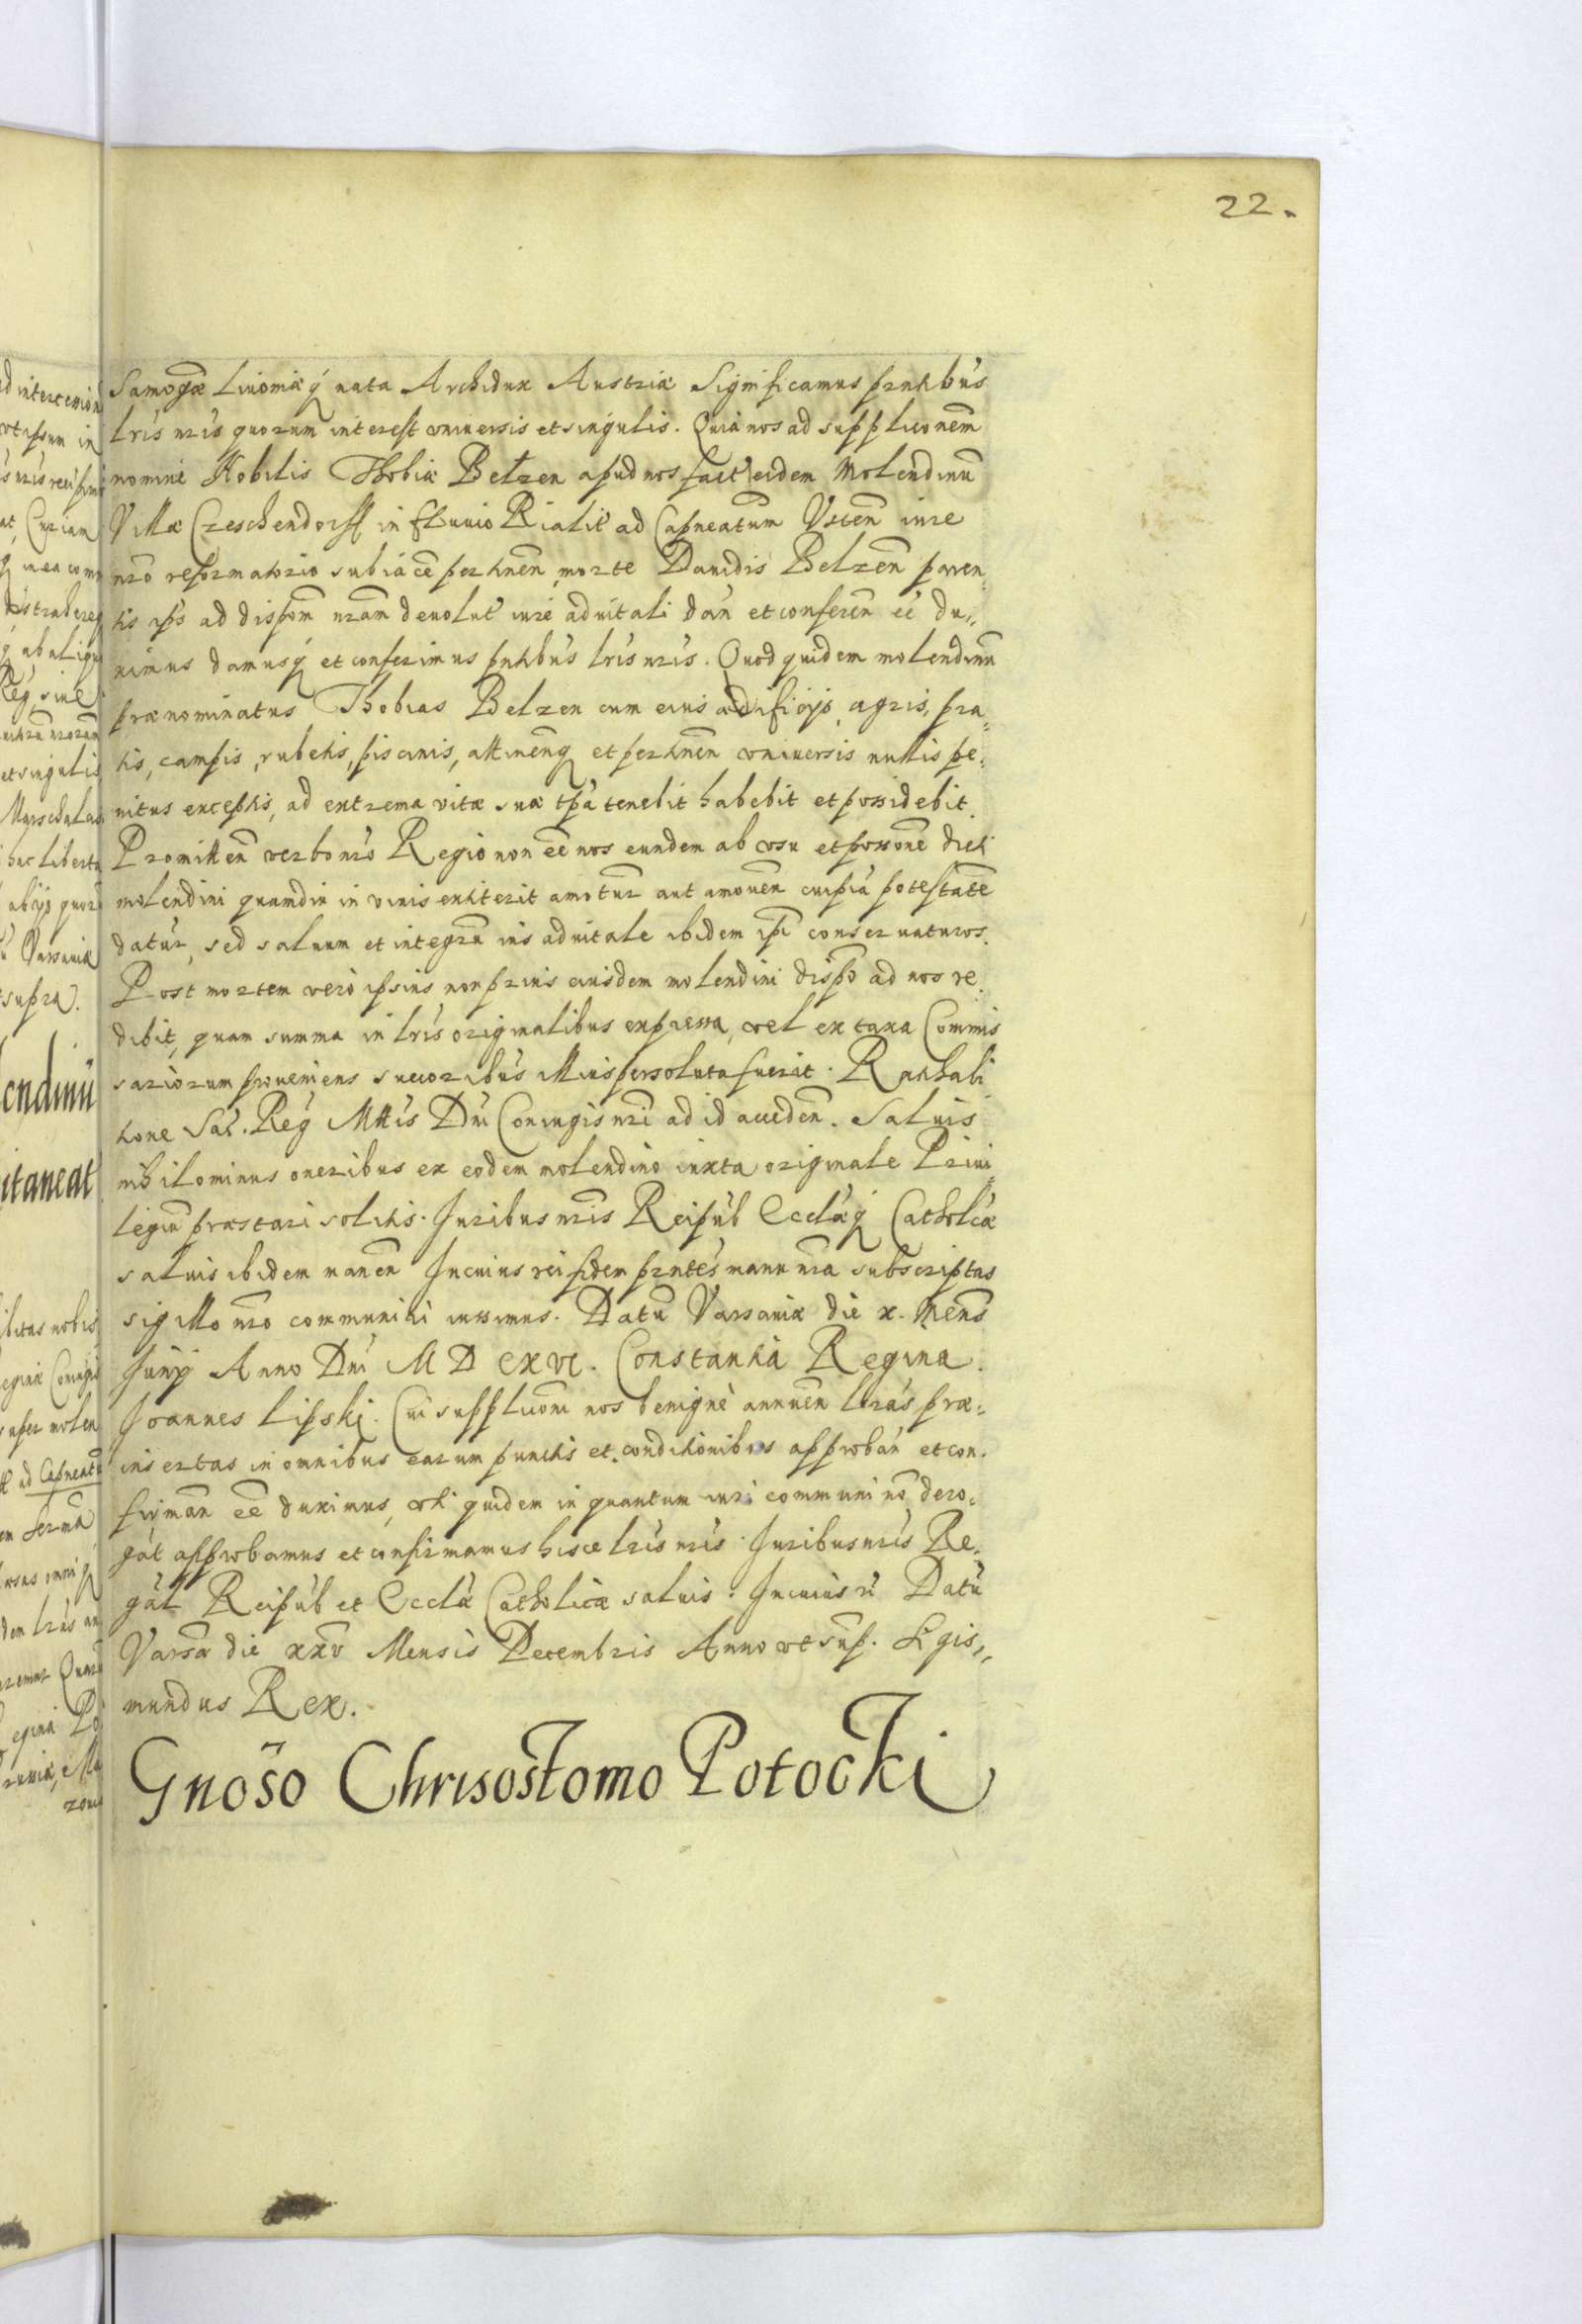 22.
Samogae Livoniaeq nata Archidux Austriae Significamus pzntibus
lris nris quorum interest vniuersis et singulis. Quia nos ad suppliconem
nomine Nobilis Thobiae Belzen apud nos fact eidem Molendinu
Villae Czeschendorff in fluuio Rialit ad Capneatum Vsten iure
nro reformatorio subiace pertinen morte Dauidis Belzen paren
tis ipsi ad dispom nram deuolut iure aduitali dan et conferen ee du,,
ximus damusq et conferimus pntibus lris nris. Quod quidem molendinu
praenominatus Thobias Belzen cum eius aedificijs, agris, pra,
tis, campis, rubetis, piscinis, attinenq et pertinen vniuersis nullis pe,
nitus exceptis, ad extrema vitae suae tpa tenebit habebit et possidebit.
Promitten verbo nro Regio non ee nos eundem ab vsu et possone dicti
molendini quamdiu in viuis extiterit amotur aut amouen cuipia potestate
datur, sed saluum et integru ius aduitale ibidem ipi conseruaturos.
Post mortem vero ipsius non prius eiusdem molendini dispo ad nos re,
dibit, quam summa in lris originalibus expressa, vel ex taxa Commis
sariorum proueniens succoribus illius persoluta fuerit. Rathabi
tone Sac. Reg Mttis Dni Coniugis nri ad id acceden. Saluis
nihilominus oneribus ex eodem molendino iuxta originale Priui,
legiu praestari solitis. Juribus nris Reipub Ecclaeq Catholcae
saluis ibidem manen Jn cuius rei fidem pzntes manu nra subscriptas
sigillo nro communiri iussimus. Datu Varsauiae die x. Mens
Junij Anno Dni M D CXVI. Constantia Regina.
Joannes Lipski. Cui suppliconi nos benigne annuen lras prae,
insertas in omnibus earum punctis et conditionibus approban et con,
firman ee duximus, vti quidem in quantum iuri communi no dero,
gat approbamus et confirmamus hisce lris nris. Juribus nris Re,
gal Reipub et Eccla Catholicae saluis. Jn cuius ri Datu
Varsa die xxv Mensis Decembris Anno vt sup. Sigis,,
mundus Rex.
Gnoso Chrisostomo Potocki